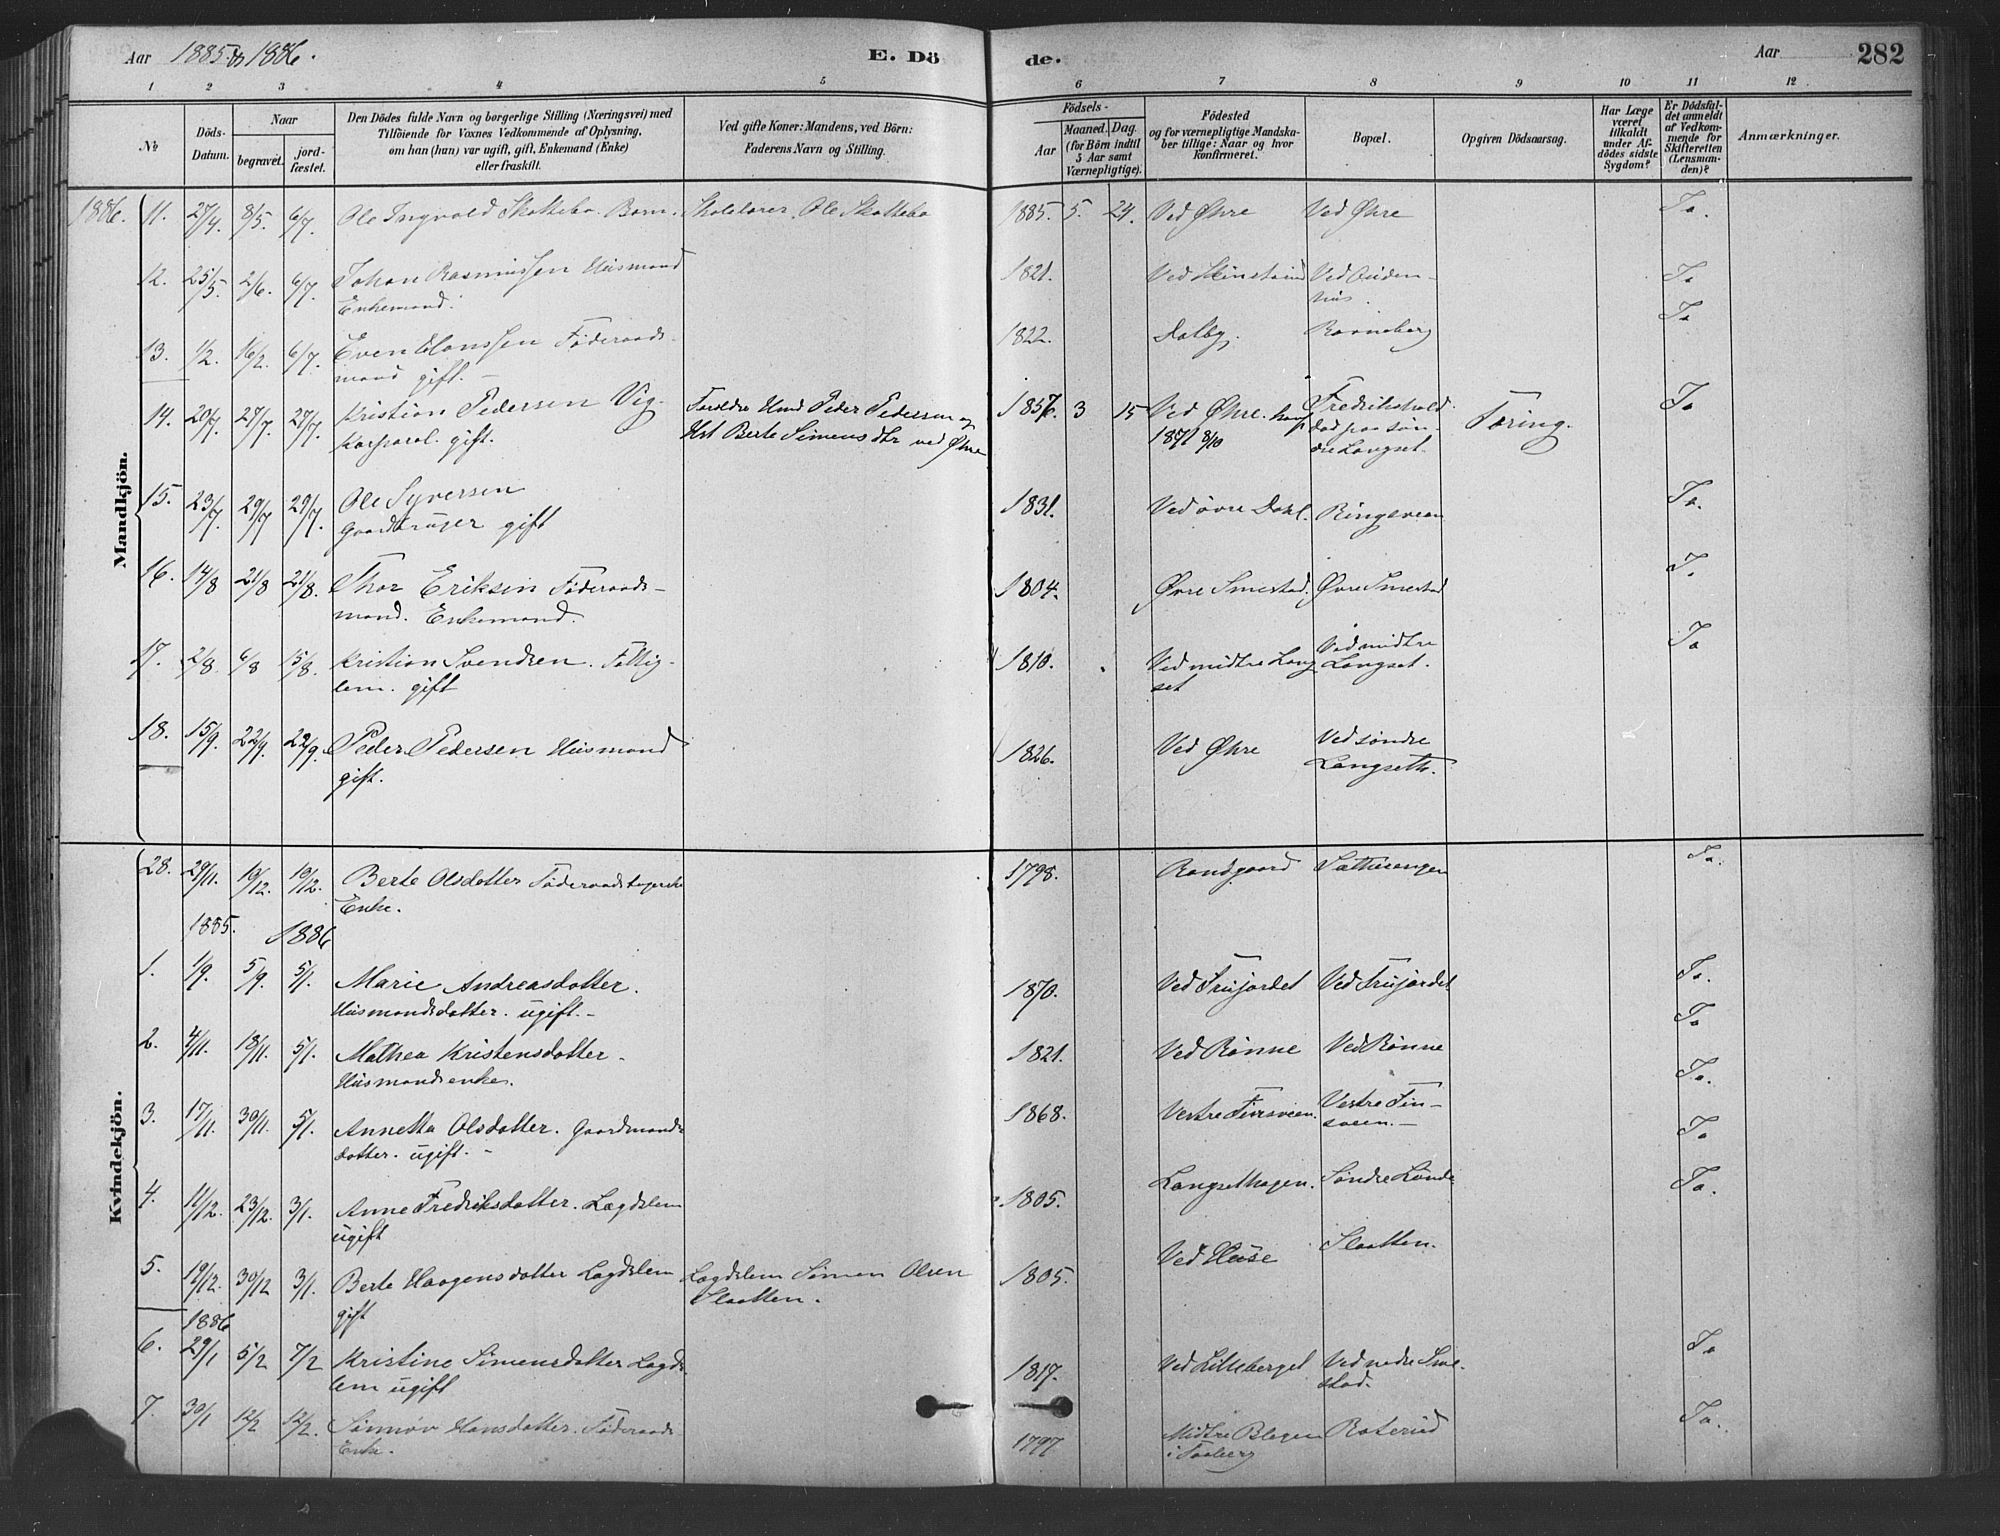 Aar 1885 og 1886. E. Dö de. Aar 282
1 2 3 4 5 6 7 8 9 10 11 12
No Döds-Datum. Naar begravet. jordfæstet.
Den Dödes fulde Navn og borgerlige Stilling (Næringsvei) med
Tilföiende for Voxnes Vedkommende af Oplysning,
om han (hun) var ugift, gift, Enkemand (Enke)
eller fraskilt.
Ved gifte Koner: Mandens, ved Börn:
Faderens Navn og Stilling.
Födsels-
Aar Maaned. Dag.
(for Börn indtil
5 Aar samt
Værnepligtige).
Födested
og for værnepligtige Mandska-
ber tillige: Naar og hvor
konfirmeret.
Bopæl.
Opgiven Dödsaarsag.
Har Læge
været
tilkaldt
under Af-
dödes sidste
Sygdom?
Er Dödsfal-
det anmeldt
af Vedkom-
mende for
Skifteretten
(Lensman-
den)?
Anmærkninger.
Mandkjön.
1886. 11. 27/4 8/5. 6/7. Ole Ingvald Skottebo. Barn. Skolelærer, Ole Skottebo 1885. 5. 24. Ved Øhre Ved Øhre Ja.
12. 25/5. 2/6. 6/7. Johan Rasmussen Husmand Enkemand. 1821. Ved Ved Ja
13. 1/2. 16/2. 6/7. Even Hanssen Föderaads-
mand gift. 1822. Dalby. Ja
14. 20/7. 27/7. 27/7. Kristian Pedersen Vig.
Korporal. gift. Forældre Hmd Peder Pedersen og
Hst Berte Simens dtr ved Øhre 1857. 3 15 Ved Øhre.
1871 8/10 Fredrikshald
død paa søn-
dre Langset. Tæring. Ja
15. 23/7. 29/7 29/7. Ole Syversen
Gaardbruger gift 1831. Ved øvre Dahl. Ringsveen Ja.
16. 14/8 21/8 21/8. Thor Eriksen Föderaads-
mand. Enkemand. 1804. Øvre Smestad. Øvre Smestad Ja.
17. 2/8. 6/8 15/8. Kristian Svendsen. Fattig-
lem. gift 1810. Ved midtre Lang
set Ved midtre
Langset. Ja
18. 15/9. 22/9. 22/9. Peder Pedersen Husmand
gift. 1826. Ved Øhre Ved søndre
Langseth.
Kvindekjön.
28. 29/11. 10/12. 10/12. Berte Olsdatter
Enke. 1798. Randgaard Ja.
1885. 1886
1. 1/9. 5/9. 5/1. Marie Andreasdatter.
Husmandsdatter. ugift. 1870. Ved Frujordet Ved Frujordet Ja.
2. 4/11. 18/11. 5/1. Mathea Kristensdatter.
Husmandsenke. 1821. Ved Rønne Ved Rønne Ja
3. 17/11. 30/11. 5/1. Annetta Olsdatter. Gaardmands
datter. ugift. 1868. Vestre Vestre Fin-
sveen. Ja.
4. 11/12. 23/12. 3/1. Anne Fredriksdatter. Lægdslem
ugift 1805. Langsethagen. Søndre Ja
5. 19/12. 30/12 3/1. Berte Haagensdatter Lægdslem
gift Lægdslem Simen Olsen
Slaatten. 1805. Ved Huse Slaatten. Ja.
1886
6. 29/1 5/2 7/2 Kristine Simensdatter Lægds-
lem ugift 1817. Ved Lilleberget Ved nedre Sme-
stad. Ja
7. 30/1 12/2 12/2. Sønnøv Hansdatter. Föderaads
Enke. 1797 Midtre Blegen
i Faaberg Roterud Ja.